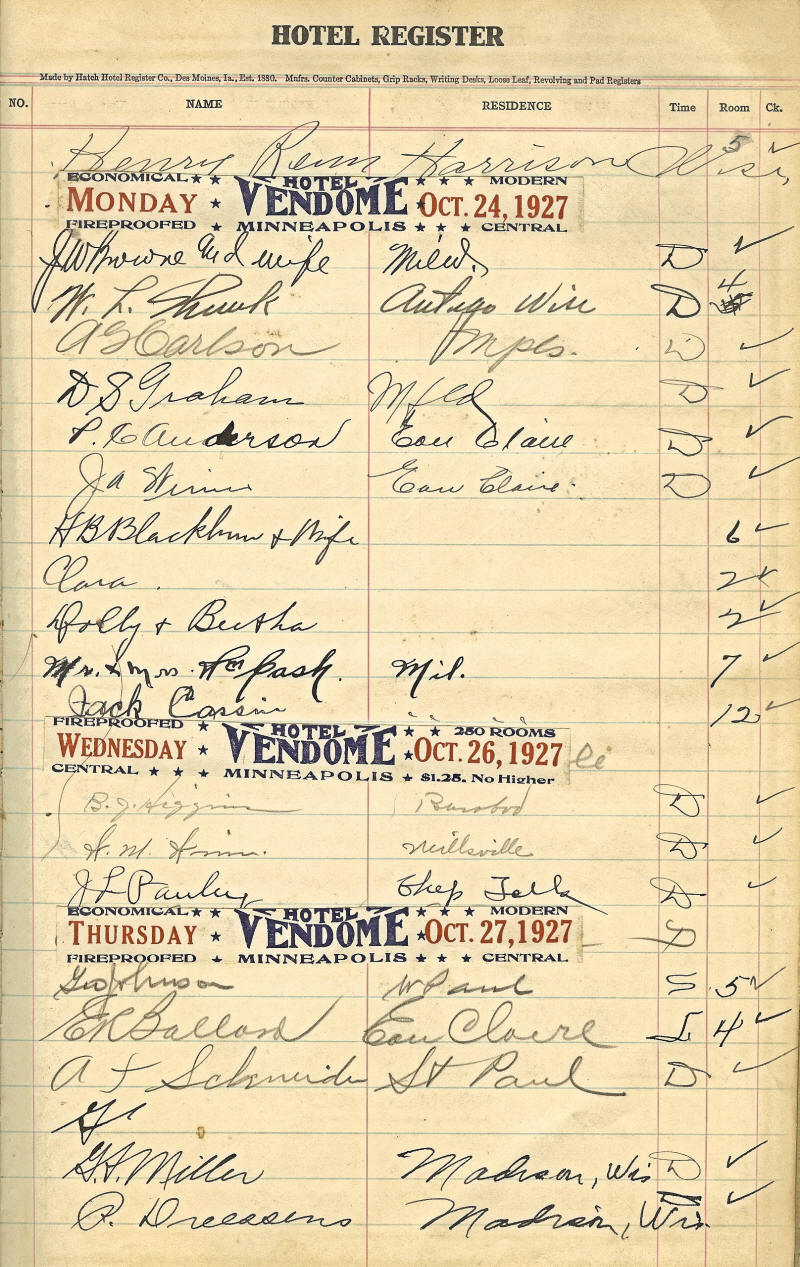 HOTEL REGISTER
Made by Hatch Hotel Register Co., Des Moines, Ia., Est. 1880. Mnfrs. Counter Cabinets, Grip Racks, Writing Desks, Loose Leaf, Revolving and Pad Registers
NO. NAME RESIDENCE Time Room Ck.
Henry Harrison Wis, 5 ✓
ECONOMICAL ★ ★ HOTEL ★ ★ ★ MODERN
MONDAY ★ VENDOME ★ OCT. 24, 1927
FIREPROOFED ★ MINNEAPOLIS ★ ★ ★ CENTRAL
J W Browne and wife Milw. D ✓
W. L. Antigo Wisc D 4
A G Carlson Mpls. D ✓
D S Graham Mfld D ✓
P. C Anderson Eau Claire D ✓
J A Winn Eau Claire. D ✓
H B Blackburn & Wife 6 ✓
Clara . 2 ✓
Dolly & Bertha 2 ✓
Mr. & Mrs. Wm Cash. Mil. 7 ✓
Jack Cassin " " 12 ✓
FIREPROOFED ★ HOTEL ★ ★ 250 ROOMS
WEDNESDAY ★ VENDOME ★ OCT. 26, 1927
CENTRAL ★ ★ ★ MINNEAPOLIS ★ $1.25. No Higher
B. J. Higgins D ✓
H. M. Neillsville D ✓
J L Pauley Chep Falls D ✓
ECONOMICAL ★ ★ HOTEL ★ ★ ★ MODERN
THURSDAY ★ VENDOME ★ OCT. 27, 1927 D
FIREPROOFED ★ MINNEAPOLIS ★ ★ ★ CENTRAL
Geo Johnson Paul S 5 ✓
E R Ballard Eau Claire L 4 ✓
A F Schneider St Paul D ✓
G. H. Miller Madison, Wis D ✓
P. Dreessens Madison, Wis. ✓